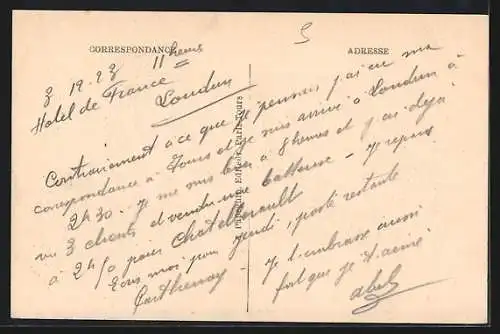 CORRESPONDANCE
ADRESSE
5
3 19.23 11 heures
Hotel de France
Loudun
Contrairement à ce que je pensais, j'ai eu ma
correspondance à Tours et je suis arrivé à Loudun à
2h30. Je me suis levé à 8 heures et j'ai déjà
vu 3 clients et vendu une batteuse - Je repars
à 2h pour Chatellerault
Ecris moi pour jeudi, poste restante
Parthenay -
Je t'embrasse aussi
fort que je t'aime
Abel
Editeur, Paris-Tours